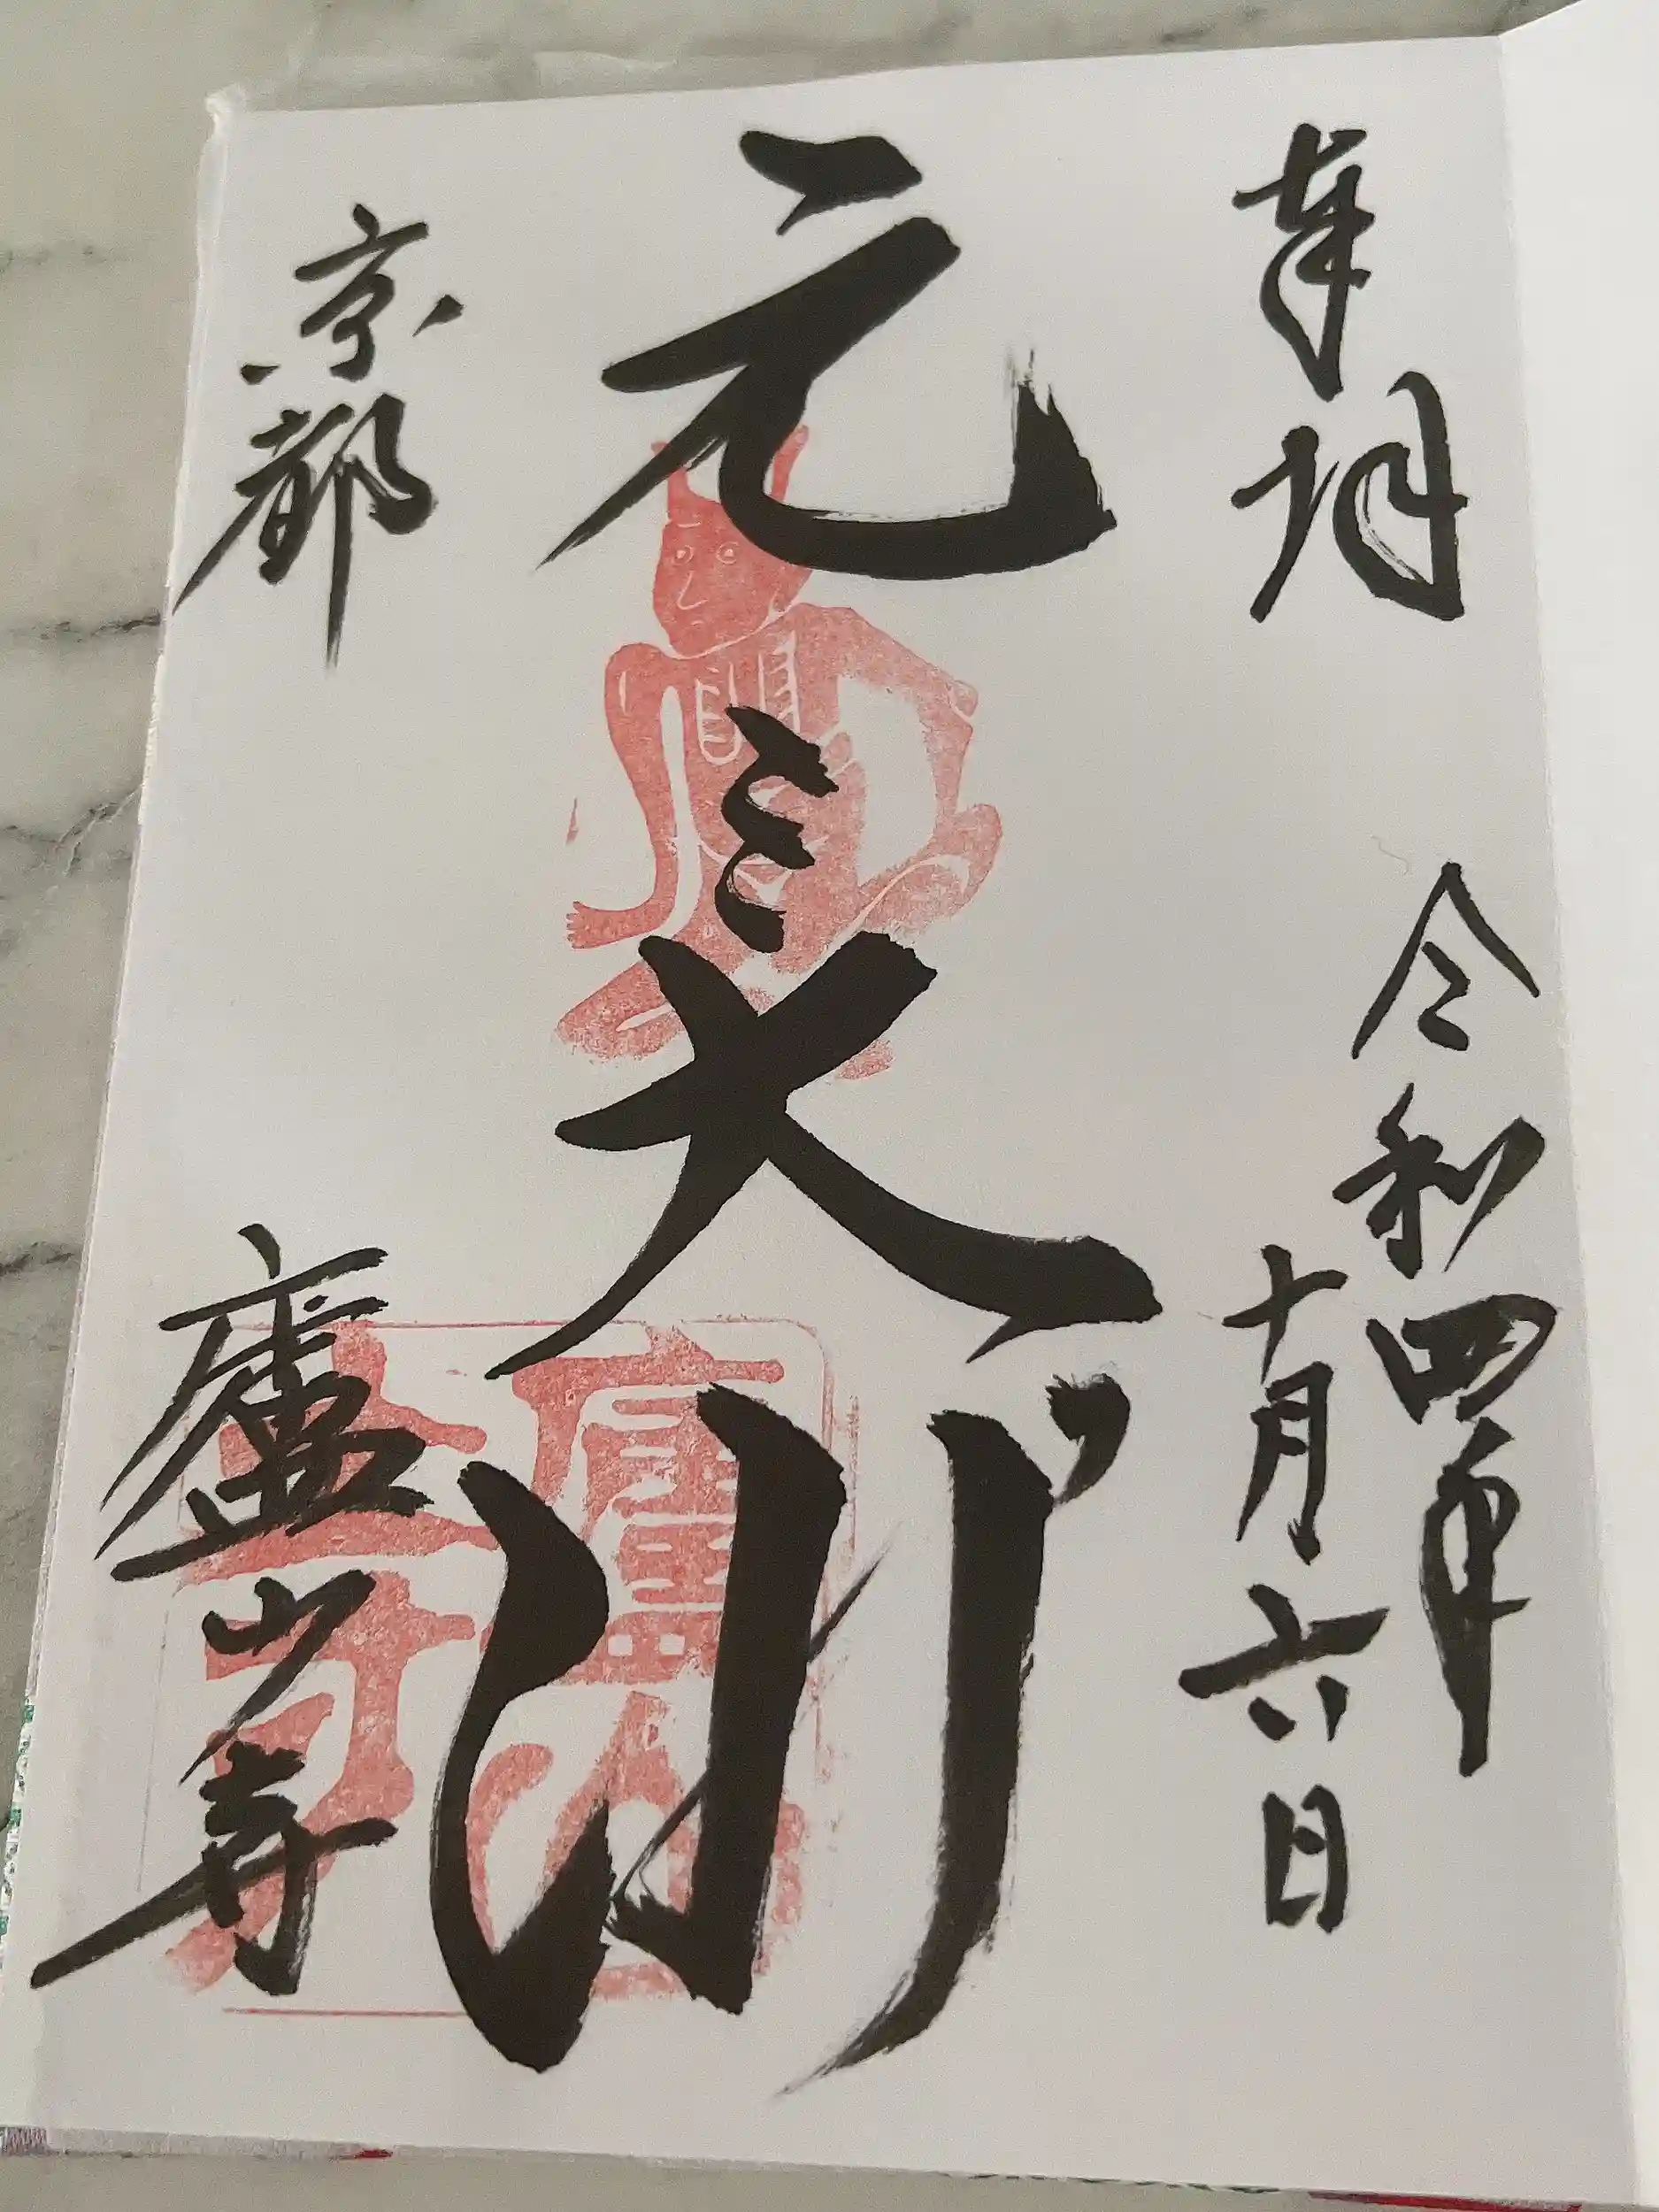 奉拝
令和四年
十月六日
元三大師
京都
廬山寺
廬山
寺